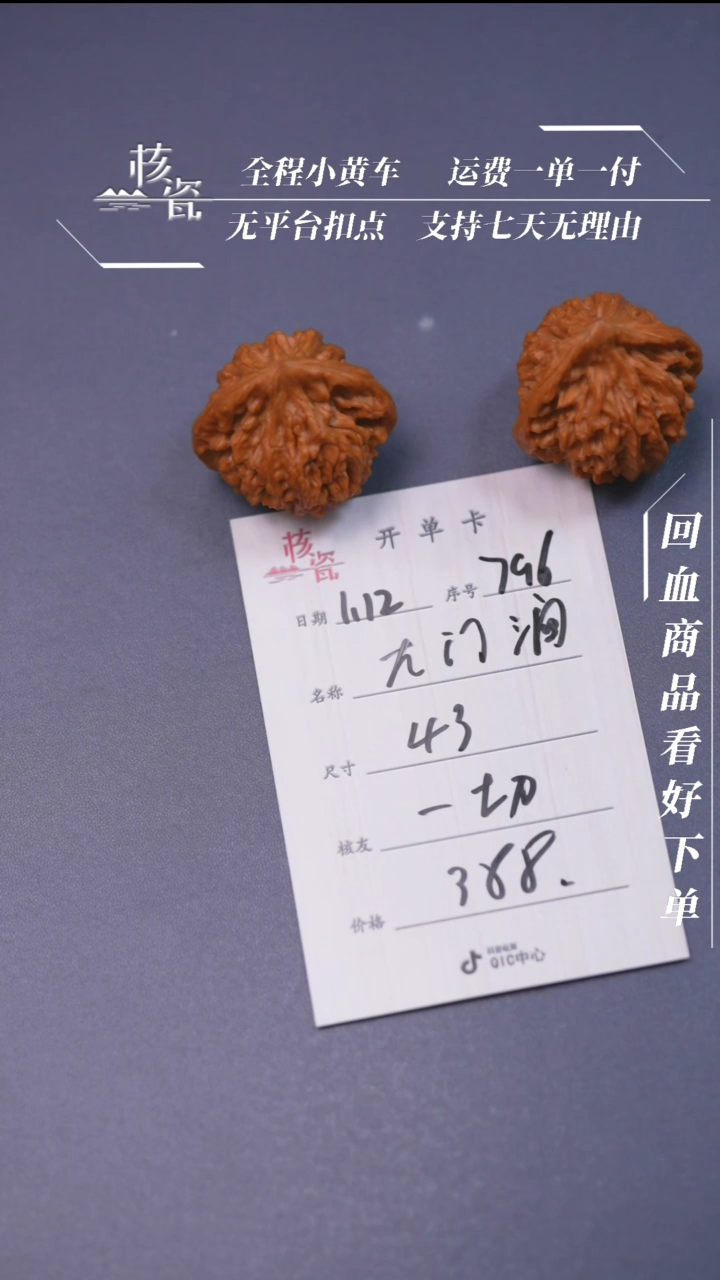 核瓷
全程小黄车 运费一单一付
无平台扣点 支持七天无理由
回血商品看好下单
核瓷 开单卡
日期 1.12 序号 796
名称 大门涧
尺寸 43
核友 一切
价格 388.
QIC中心